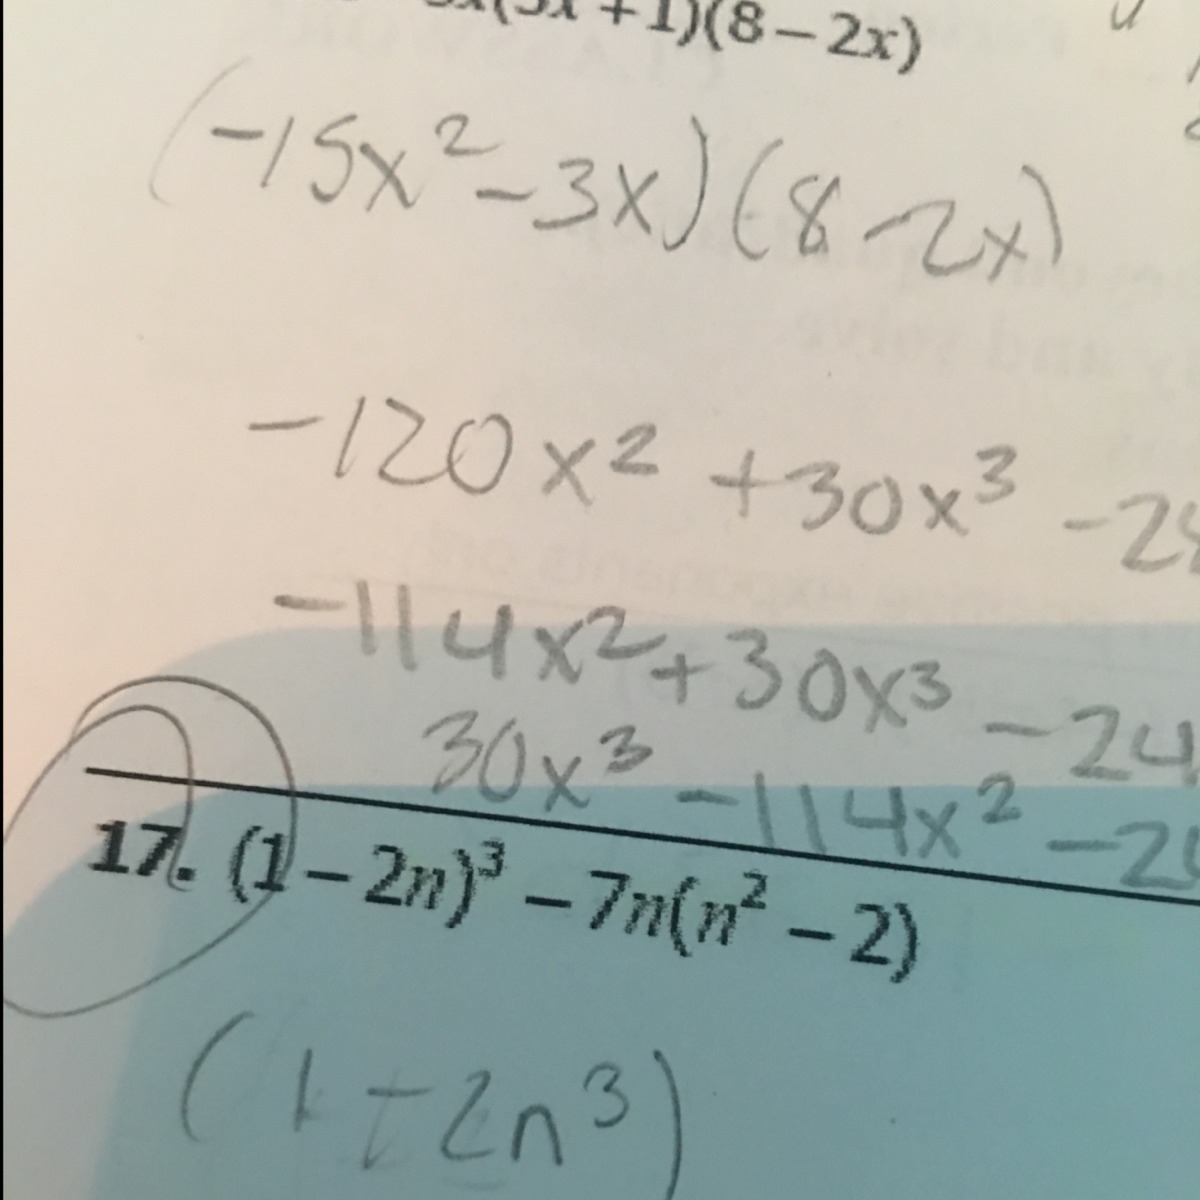 x +1)(8 – 2x)
(-15x² - 3x)(8 - 2x)
-120x² + 30x³ - 2
-114x² + 30x³ - 24
30x³ - 114x² - 2
17. (1 – 2n)³ – 7n(n² – 2)
(1 - 2n³)